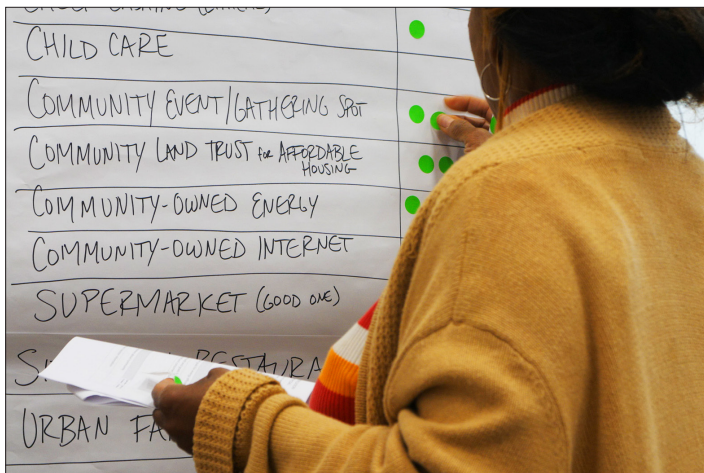 CHILD CARE
COMMUNITY EVENT/GATHERING SPOT
COMMUNITY LAND TRUST for AFFORDABLE
HOUSING
COMMUNITY-OWNED ENERGY
COMMUNITY-OWNED INTERNET
SUPERMARKET (GOOD ONE)
URBAN